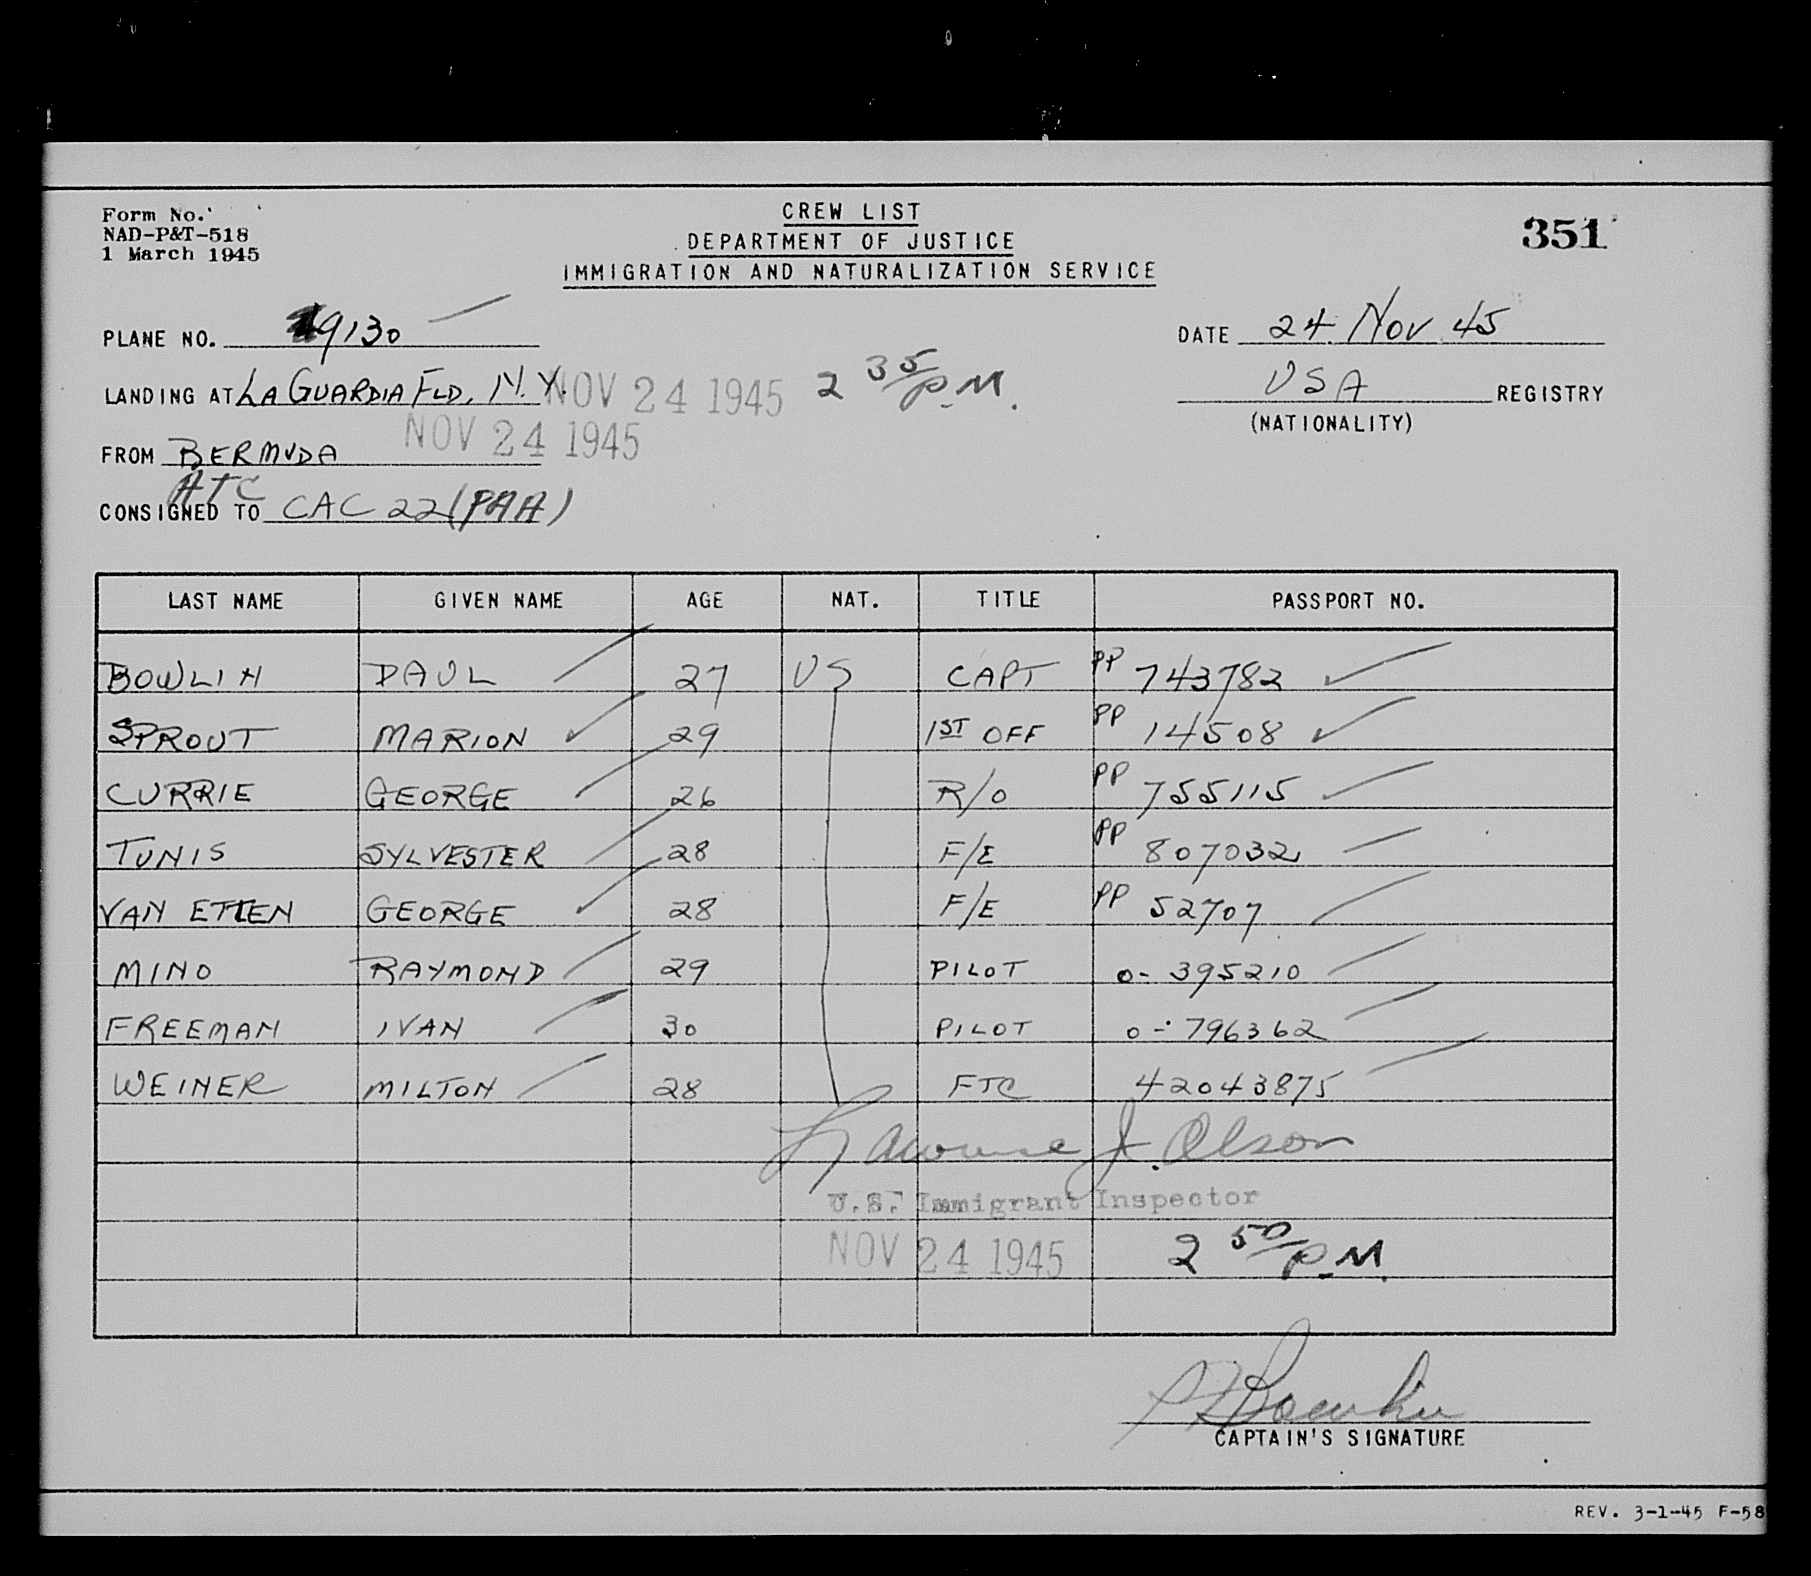 Form No.
NAD-P&T-518
1 March 1945
CREW LIST
DEPARTMENT OF JUSTICE
IMMIGRATION AND NATURALIZATION SERVICE
351
PLANE NO. 9130
DATE 24 Nov 45
LANDING AT LA GUARDIA FLD, N.Y. NOV 24 1945 2 35/P.M.
USA REGISTRY
(NATIONALITY)
FROM BERMUDA NOV 24 1945
ATC
CONSIGNED TO CAC 22 (PAA)
LAST NAME GIVEN NAME AGE NAT. TITLE PASSPORT NO.
BOWLIN PAUL 27 US CAPT PP 743782
SPROUT MARION 29 1ST OFF PP 14508
CURRIE GEORGE 26 R/O PP 755115
TUNIS SYLVESTER 28 F/E PP 807032
VAN ETTEN GEORGE 28 F/E PP 52707
MINO RAYMOND 29 PILOT O-395210
FREEMAN IVAN 30 PILOT O-796362
WEINER MILTON 28 FTC 42043875
Lawrence J. Olson
U.S. Immigrant Inspector
NOV 24 1945 2 50/P.M.
Bowlin
CAPTAIN'S SIGNATURE
REV. 3-1-45 F-58